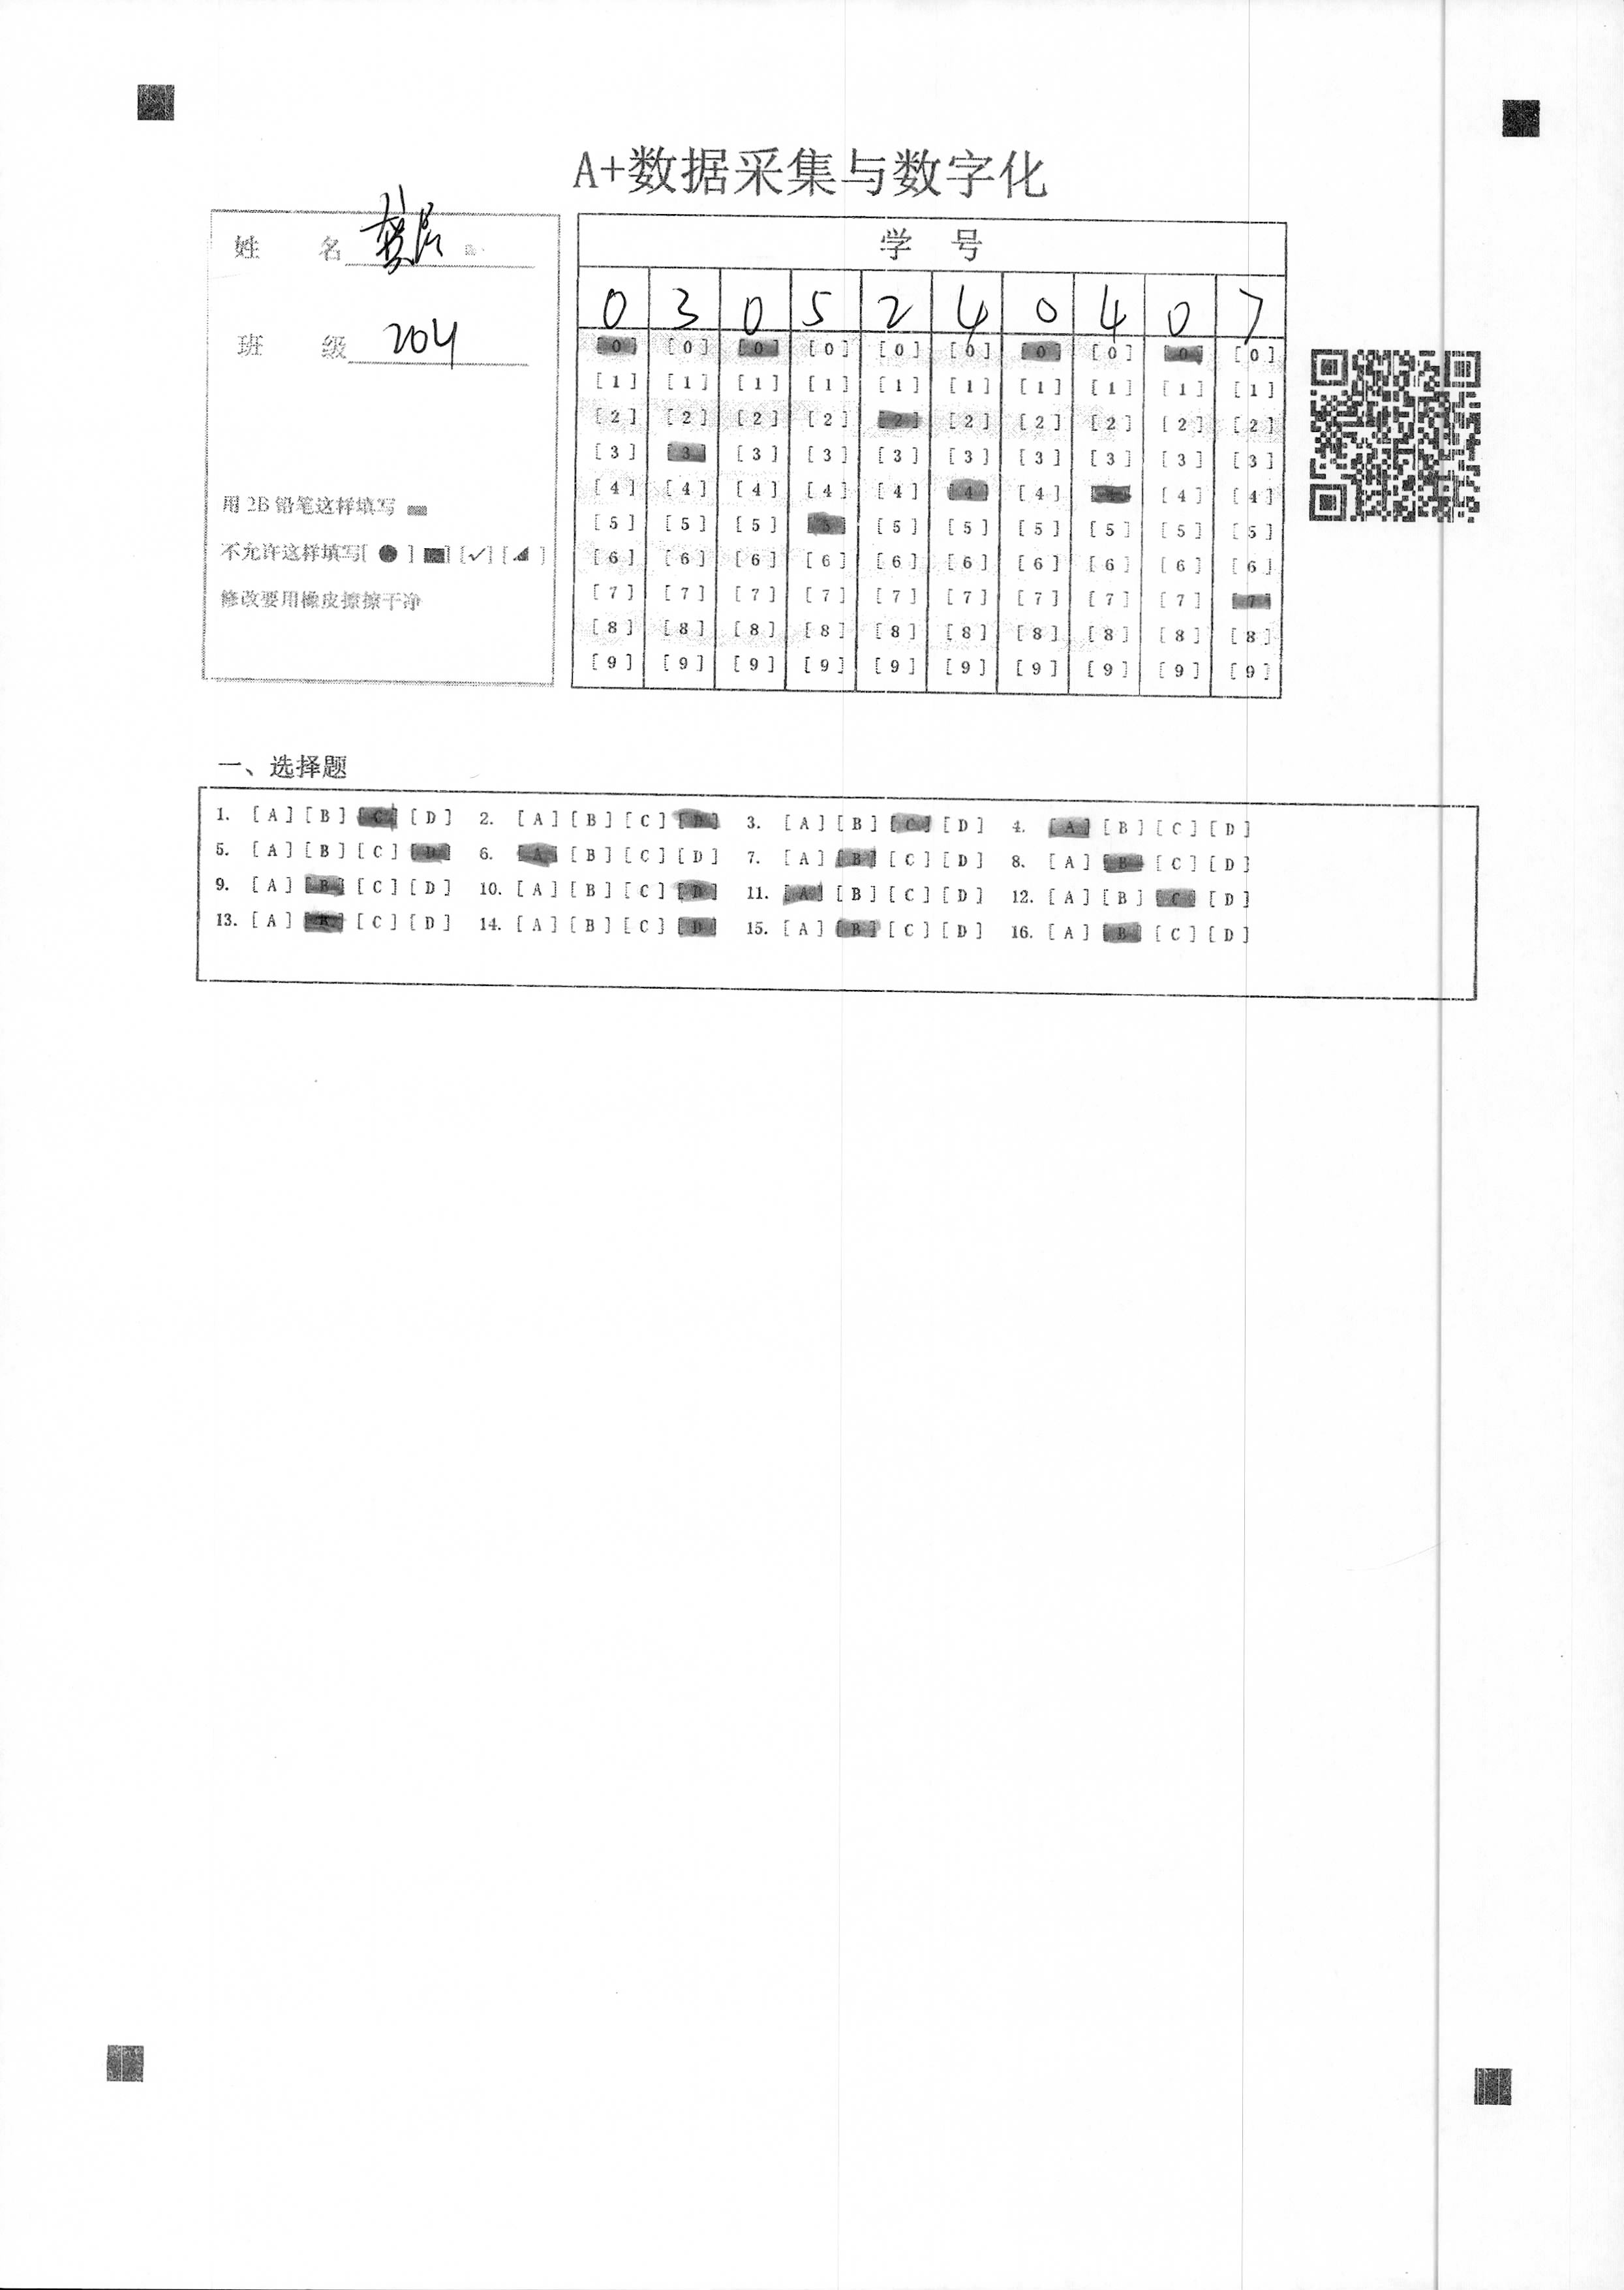 A+数据采集与数字化
姓 名
班 级 204
用 2B 铅笔这样填写
不允许这样填写[ ● ] [■] [✓] [◢ ]
修改要用橡皮擦擦干净
学 号
0 3 0 5 2 4 0 4 0 7
[0] [0] [0] [0] [0] [0] [0] [0] [0] [0]
[1] [1] [1] [1] [1] [1] [1] [1] [1] [1]
[2] [2] [2] [2] [2] [2] [2] [2] [2] [2]
[3] [3] [3] [3] [3] [3] [3] [3] [3] [3]
[4] [4] [4] [4] [4] [4] [4] [4] [4] [4]
[5] [5] [5] [5] [5] [5] [5] [5] [5] [5]
[6] [6] [6] [6] [6] [6] [6] [6] [6] [6]
[7] [7] [7] [7] [7] [7] [7] [7] [7] [7]
[8] [8] [8] [8] [8] [8] [8] [8] [8] [8]
[9] [9] [9] [9] [9] [9] [9] [9] [9] [9]
一、选择题
1. [A] [B] [C] [D] 2. [A] [B] [C] [D] 3. [A] [B] [C] [D] 4. [A] [B] [C] [D]
5. [A] [B] [C] [D] 6. [A] [B] [C] [D] 7. [A] [B] [C] [D] 8. [A] [B] [C] [D]
9. [A] [B] [C] [D] 10. [A] [B] [C] [D] 11. [A] [B] [C] [D] 12. [A] [B] [C] [D]
13. [A] [B] [C] [D] 14. [A] [B] [C] [D] 15. [A] [B] [C] [D] 16. [A] [B] [C] [D]